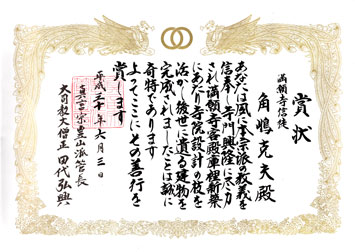 賞状
満願寺信徒
角嶋克夫殿
あなたは夙に本宗派の教義を
信奉し寺門興隆に尽力
され満願寺客殿庫裡新築
にあたり寺院設計の技を
活かし後世に遺る建物を
完成されましたことは誠に
奇特であります
よってここにその善行を
賞します
平成二十年六月三日
真言宗豊山派管長
大司教大僧正 田代弘興